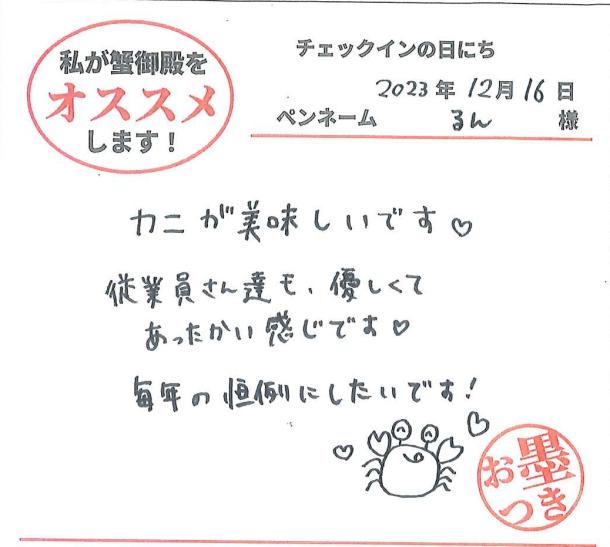 私が蟹御殿を
オススメ
します！
チェックインの日にち
2023年12月16日
ペンネーム るん 様
カニが美味しいです♡
従業員さん達も、優しくて
あったかい感じです♡
毎年の恒例にしたいです！
お墨
つき